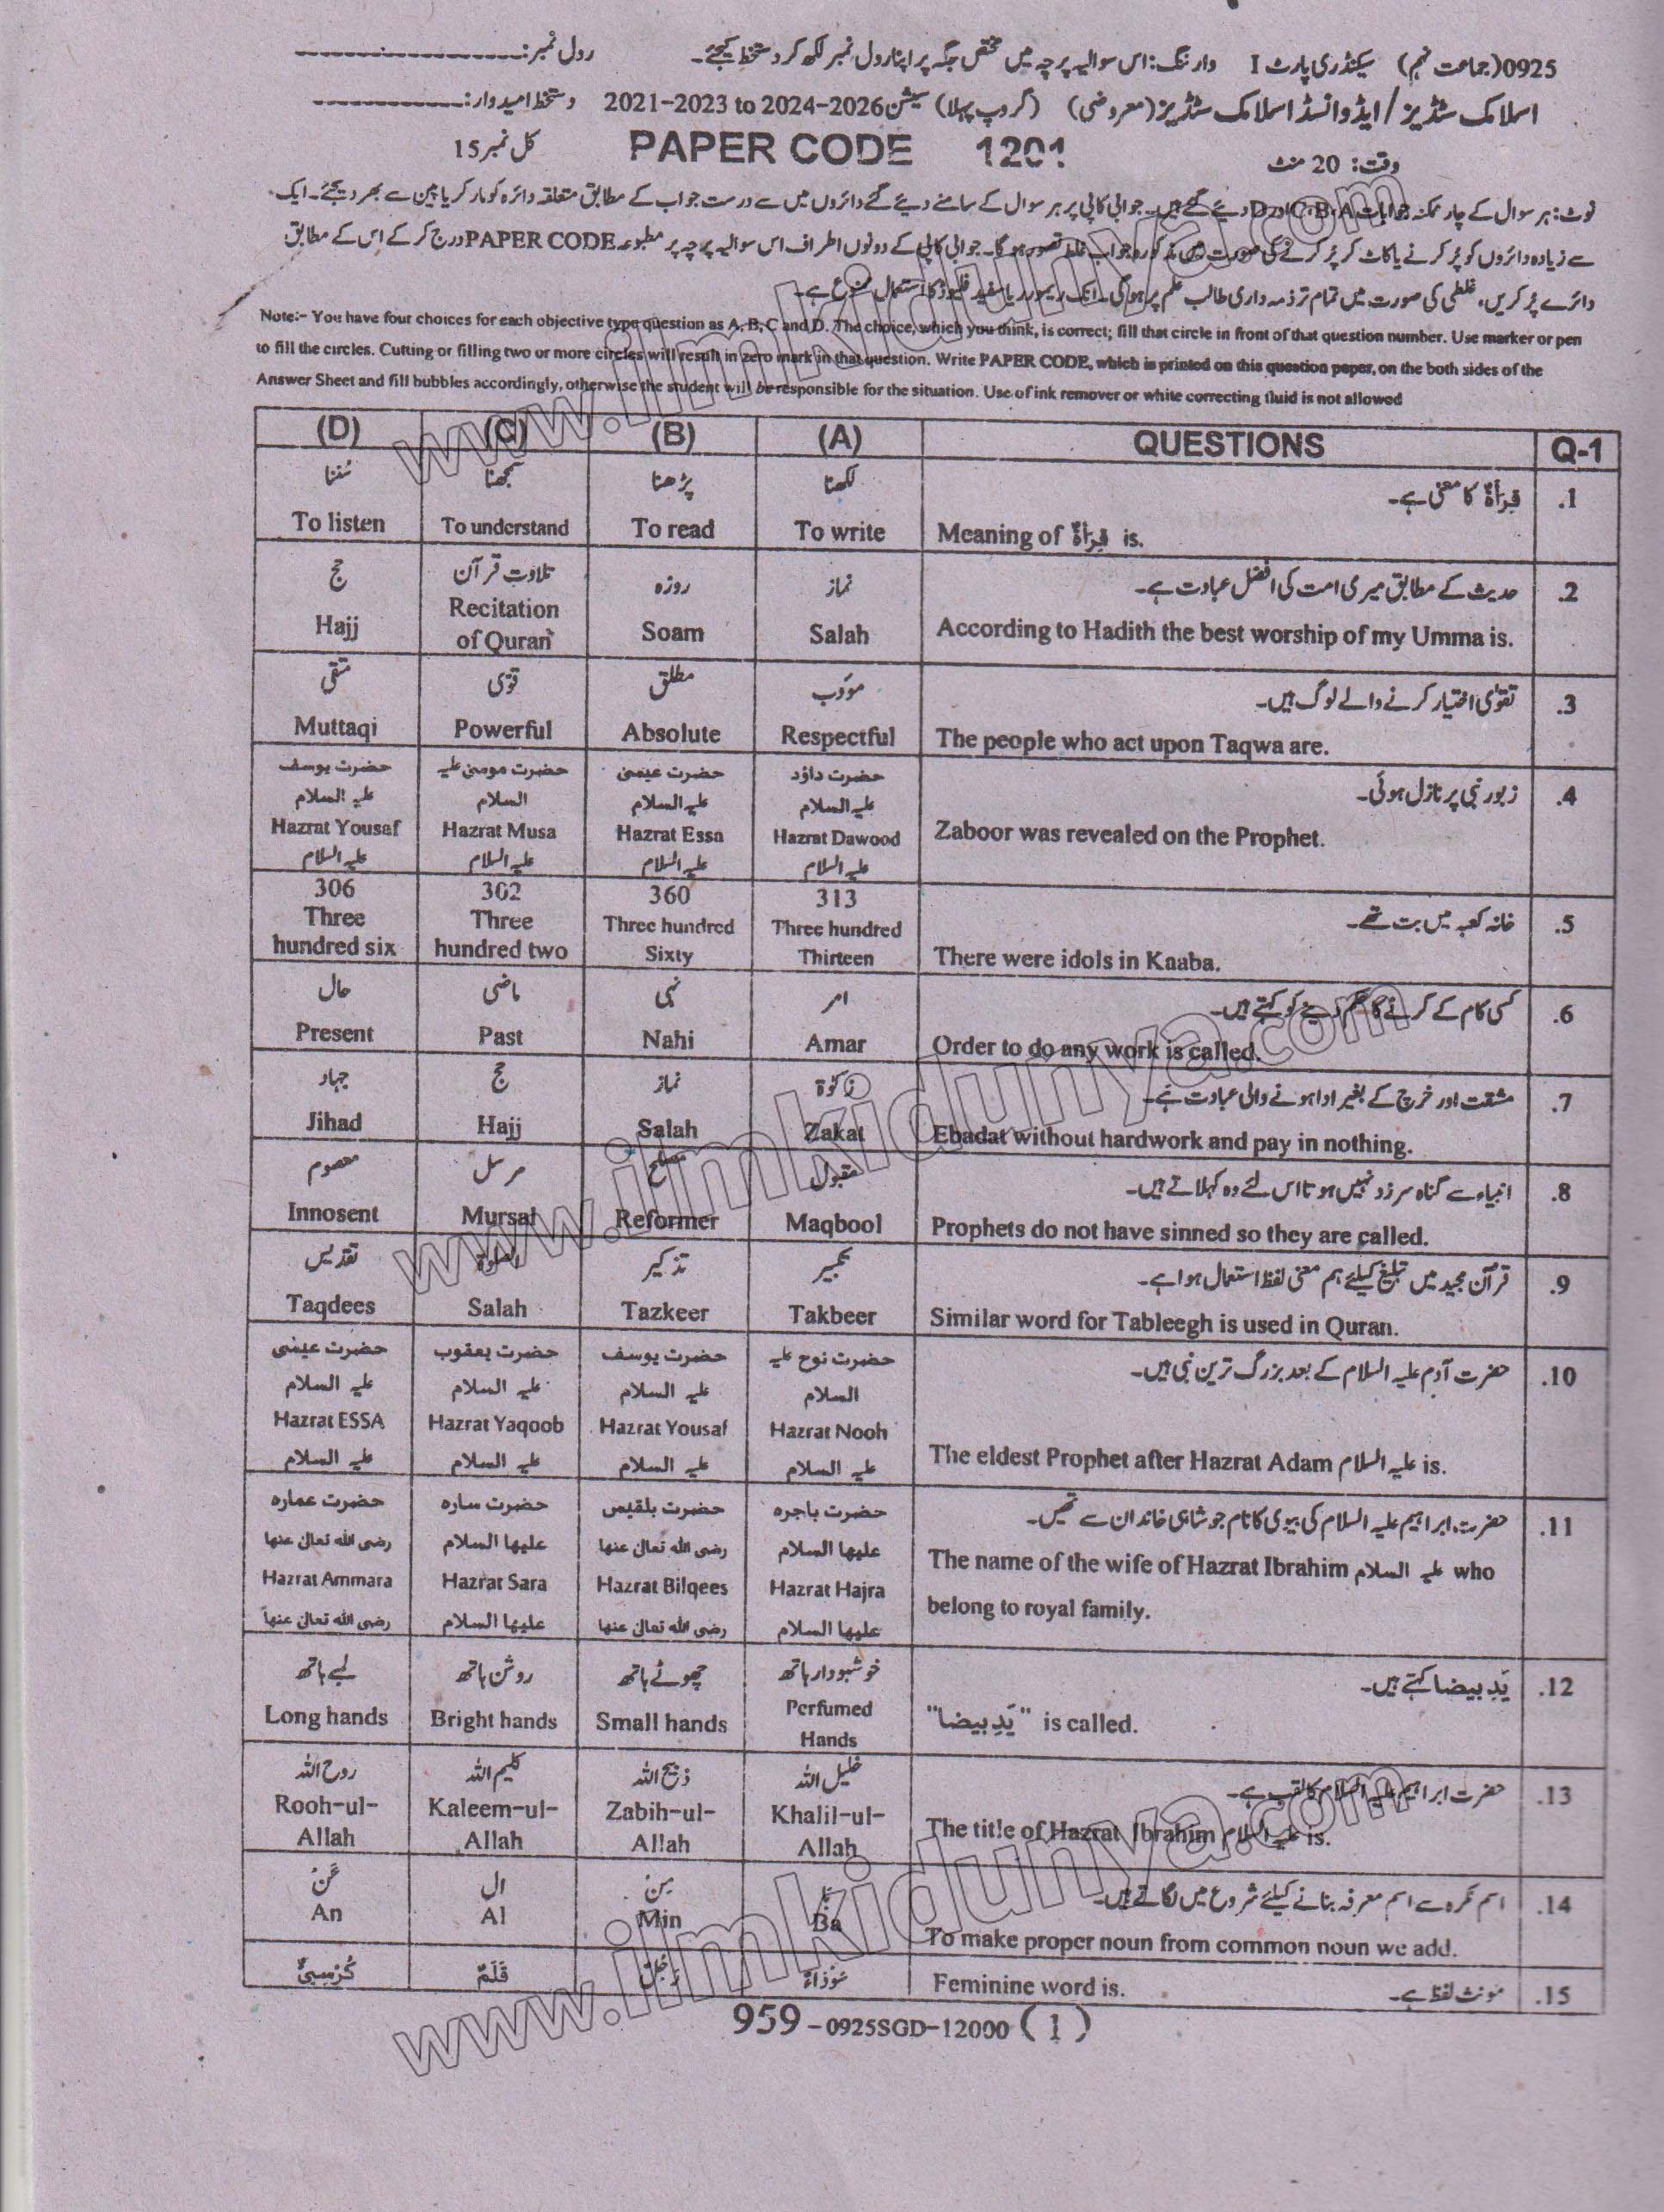 0925(جماعت نہم) سیکنڈری پارٹ I وارننگ: اس سوالیہ پرچہ میں مختص جگہ پر اپنا رول نمبر لکھ کر دستخط کیجئے۔ رول نمبر:
اسلامک سٹڈیز/ایڈوانسڈ اسلامک سٹڈیز(معروضی) (گروپ پہلا) سیشن 2021-2023 to 2024-2026 دستخط امیدوار:
وقت: 20 منٹ PAPER CODE 1201 کل نمبر 15
نوٹ: ہر سوال کے چار ممکنہ جوابات D اور C،B،A دیئے گئے ہیں۔ جوابی کاپی پر ہر سوال کے سامنے دیئے گئے دائروں میں سے درست جواب کے مطابق متعلقہ دائرہ کو مارکر یا پین سے بھر دیجئے۔ ایک
سے زیادہ دائروں کو پُر کرنے یا کاٹ کر پُر کرنے کی صورت میں مذکورہ جواب غلط تصور ہو گا۔ جوابی کاپی کے دونوں اطراف اس سوالیہ پرچہ پر مطبوعہ PAPER CODE درج کر کے اس کے مطابق
دائرے پُر کریں، غلطی کی صورت میں تمام تر ذمہ داری طالب علم پر ہو گی۔ انک ریموور یا سفید فلیوڈ کا استعمال ممنوع ہے۔
Note:- You have four choices for each objective type question as A, B, C and D. The choice, which you think, is correct; fill that circle in front of that question number. Use marker or pen
to fill the circles. Cutting or filling two or more circles will result in zero mark in that question. Write PAPER CODE, which is printed on this question paper, on the both sides of the
Answer Sheet and fill bubbles accordingly, otherwise the student will be responsible for the situation. Use of ink remover or white correcting fluid is not allowed
(D) (C) (B) (A) QUESTIONS Q-1
.1 قِرَأۃٌ کا معنی ہے۔
لکھنا پڑھنا سمجھنا سُننا
To listen To understand To read To write Meaning of قِرَأۃٌ is.
.2 حدیث کے مطابق میری امت کی افضل عبادت ہے۔
نماز روزہ تلاوتِ قرآن حج
Hajj Recitation of Quran Soam Salah According to Hadith the best worship of my Umma is.
.3 تقویٰ اختیار کرنے والے لوگ ہیں۔
مؤدب مطلق قوی متقی
Muttaqi Powerful Absolute Respectful The people who act upon Taqwa are.
.4 زبور نبی پر نازل ہوئی۔
حضرت داؤد علیہ السلام حضرت عیسیٰ علیہ السلام حضرت موسیٰ علیہ السلام حضرت یوسف علیہ السلام
Hazrat Yousaf علیہ السلام Hazrat Musa علیہ السلام Hazrat Essa علیہ السلام Hazrat Dawood علیہ السلام Zaboor was revealed on the Prophet.
.5 خانہ کعبہ میں بت تھے۔
306 302 360 313
Three hundred six Three hundred two Three hundred Sixty Three hundred Thirteen There were idols in Kaaba.
.6 کسی کام کے کرنے کا حکم دینے کو کہتے ہیں۔
امر نہی ماضی حال
Present Past Nahi Amar Order to do any work is called.
.7 مشقت اور خرچ کے بغیر ادا ہونے والی عبادت ہے۔
زکوٰۃ نماز حج جہاد
Jihad Hajj Salah Zakat Ebadat without hardwork and pay in nothing.
.8 انبیاء سے گناہ سرزد نہیں ہوتا اس لئے وہ کہلاتے ہیں۔
مقبول مصلح مرسل معصوم
Innosent Mursal Reformer Maqbool Prophets do not have sinned so they are called.
.9 قرآن مجید میں تبلیغ کیلئے ہم معنی لفظ استعمال ہوا ہے۔
تکبیر تذکیر الصلوۃ تقدیس
Taqdees Salah Tazkeer Takbeer Similar word for Tableegh is used in Quran.
.10 حضرت آدم علیہ السلام کے بعد بزرگ ترین نبی ہیں۔
حضرت نوح علیہ السلام حضرت یوسف علیہ السلام حضرت یعقوب علیہ السلام حضرت عیسیٰ علیہ السلام
Hazrat ESSA علیہ السلام Hazrat Yaqoob علیہ السلام Hazrat Yousaf علیہ السلام Hazrat Nooh علیہ السلام The eldest Prophet after Hazrat Adam علیہ السلام is.
.11 حضرت ابراہیم علیہ السلام کی بیوی کا نام جو شاہی خاندان سے تھیں۔
حضرت ہاجرہ علیہا السلام حضرت بلقیس رضی اللہ تعالیٰ عنہا حضرت سارہ علیہا السلام حضرت عمارہ رضی اللہ تعالیٰ عنہا
Hazrat Ammara رضی اللہ تعالیٰ عنہا Hazrat Sara علیہا السلام Hazrat Bilqees رضی اللہ تعالیٰ عنہا Hazrat Hajra علیہا السلام The name of the wife of Hazrat Ibrahim علیہ السلام who
belong to royal family.
.12 یَدِ بیضا کہتے ہیں۔
خوشبودار ہاتھ چھوٹے ہاتھ روشن ہاتھ لمبے ہاتھ
Long hands Bright hands Small hands Perfumed Hands "یَدِ بیضا" is called.
.13 حضرت ابراہیم علیہ السلام کا لقب ہے۔
خلیل اللہ ذبیح اللہ کلیم اللہ روح اللہ
Rooh-ul-Allah Kaleem-ul-Allah Zabih-ul-Allah Khalil-ul-Allah The title of Hazrat Ibrahim علیہ السلام is.
.14 اسم نکرہ سے اسم معرفہ بنانے کیلئے شروع میں لگاتے ہیں۔
بَا مِن ال عَنْ
An Al Min Ba To make proper noun from common noun we add.
.15 مونث لفظ ہے۔ Feminine word is.
سَوْدَاءُ رَجُلٌ قَلَمٌ کُرْسِیٌّ
959-0925SGD-12000 (1)
www.ilmkidunya.com
www.ilmkidunya.com
www.ilmkidunya.com